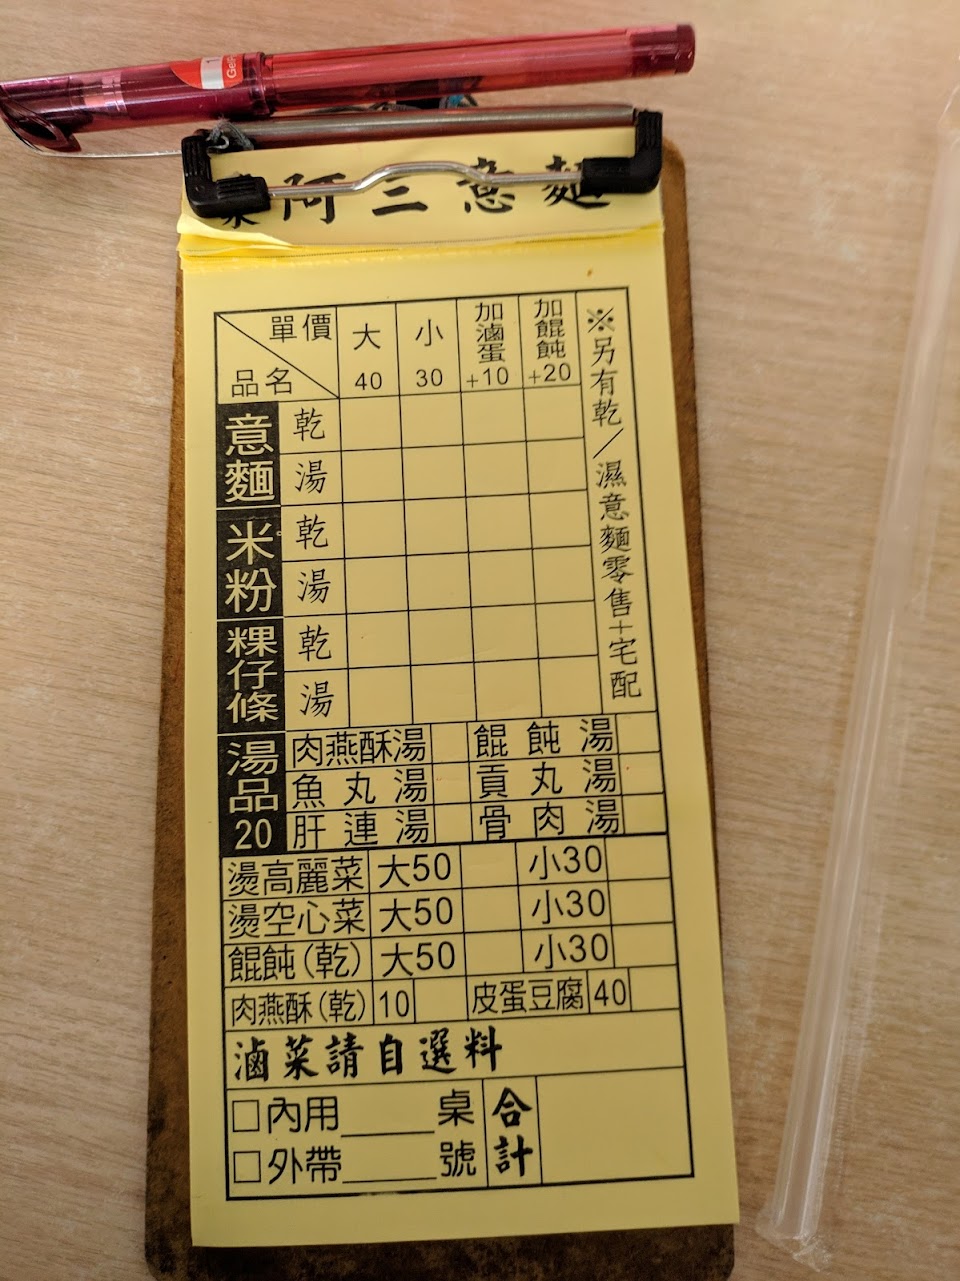 阿三意麵
單價 大 小 加滷蛋 加餛飩
品名 40 30 +10 +20
※另有乾/濕意麵零售+宅配
意麵 乾
湯
米粉 乾
湯
粿仔條 乾
湯
湯品 20
肉燕酥湯 餛飩湯
魚丸湯 貢丸湯
肝連湯 骨肉湯
燙高麗菜 大50 小30
燙空心菜 大50 小30
餛飩(乾) 大50 小30
肉燕酥(乾) 10 皮蛋豆腐 40
滷菜請自選料
□內用____桌
□外帶____號
合計